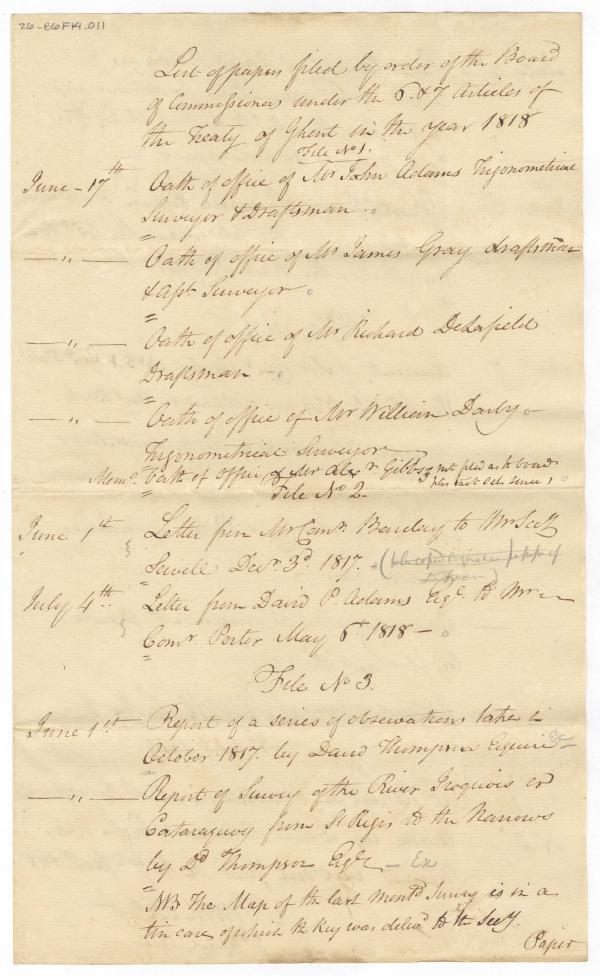 26-E6F14.011
List of papers filed by order of the Board
of Commissioners under the 6. & 7 Articles of
the Treaty of Ghent in the year 1818
File No 1.
June - 17th Oath of office of Mr John Adams Trigonometrical
Surveyor & Draftsman.
— " — Oath of office of Mr James Gray draftsman
& Asst Surveyor
— " — Oath of office of Mr Richard Delafield
Draftsman
— " — Oath of office of Mr William Darby
Trigonometrical Surveyor
Memo. Oath of Office of Mr Alexr Gibbs not filed as the board
has not sat since
File No 2.
June 1st Letter from Mr Comr. Barclay to Mr Secy
Sewell Decr. 3d. 1817. (to be copied
July 4th. Letter from David P. Adams Esqe. to Mr
Comr Porter May 6th 1818 —
File No 3.
June 1st Report of a series of observations taken in
October 1817. by David Thompson Esquire Ex
— " — Report of Survey of the River Iroquois or
Cataraguoy from St Regis to the Narrows
by Dd Thompson Esqe — Ex
NB The Map of the last mentd Survey is in a
tin case of which the Key was delivd to the Secy.
Paper